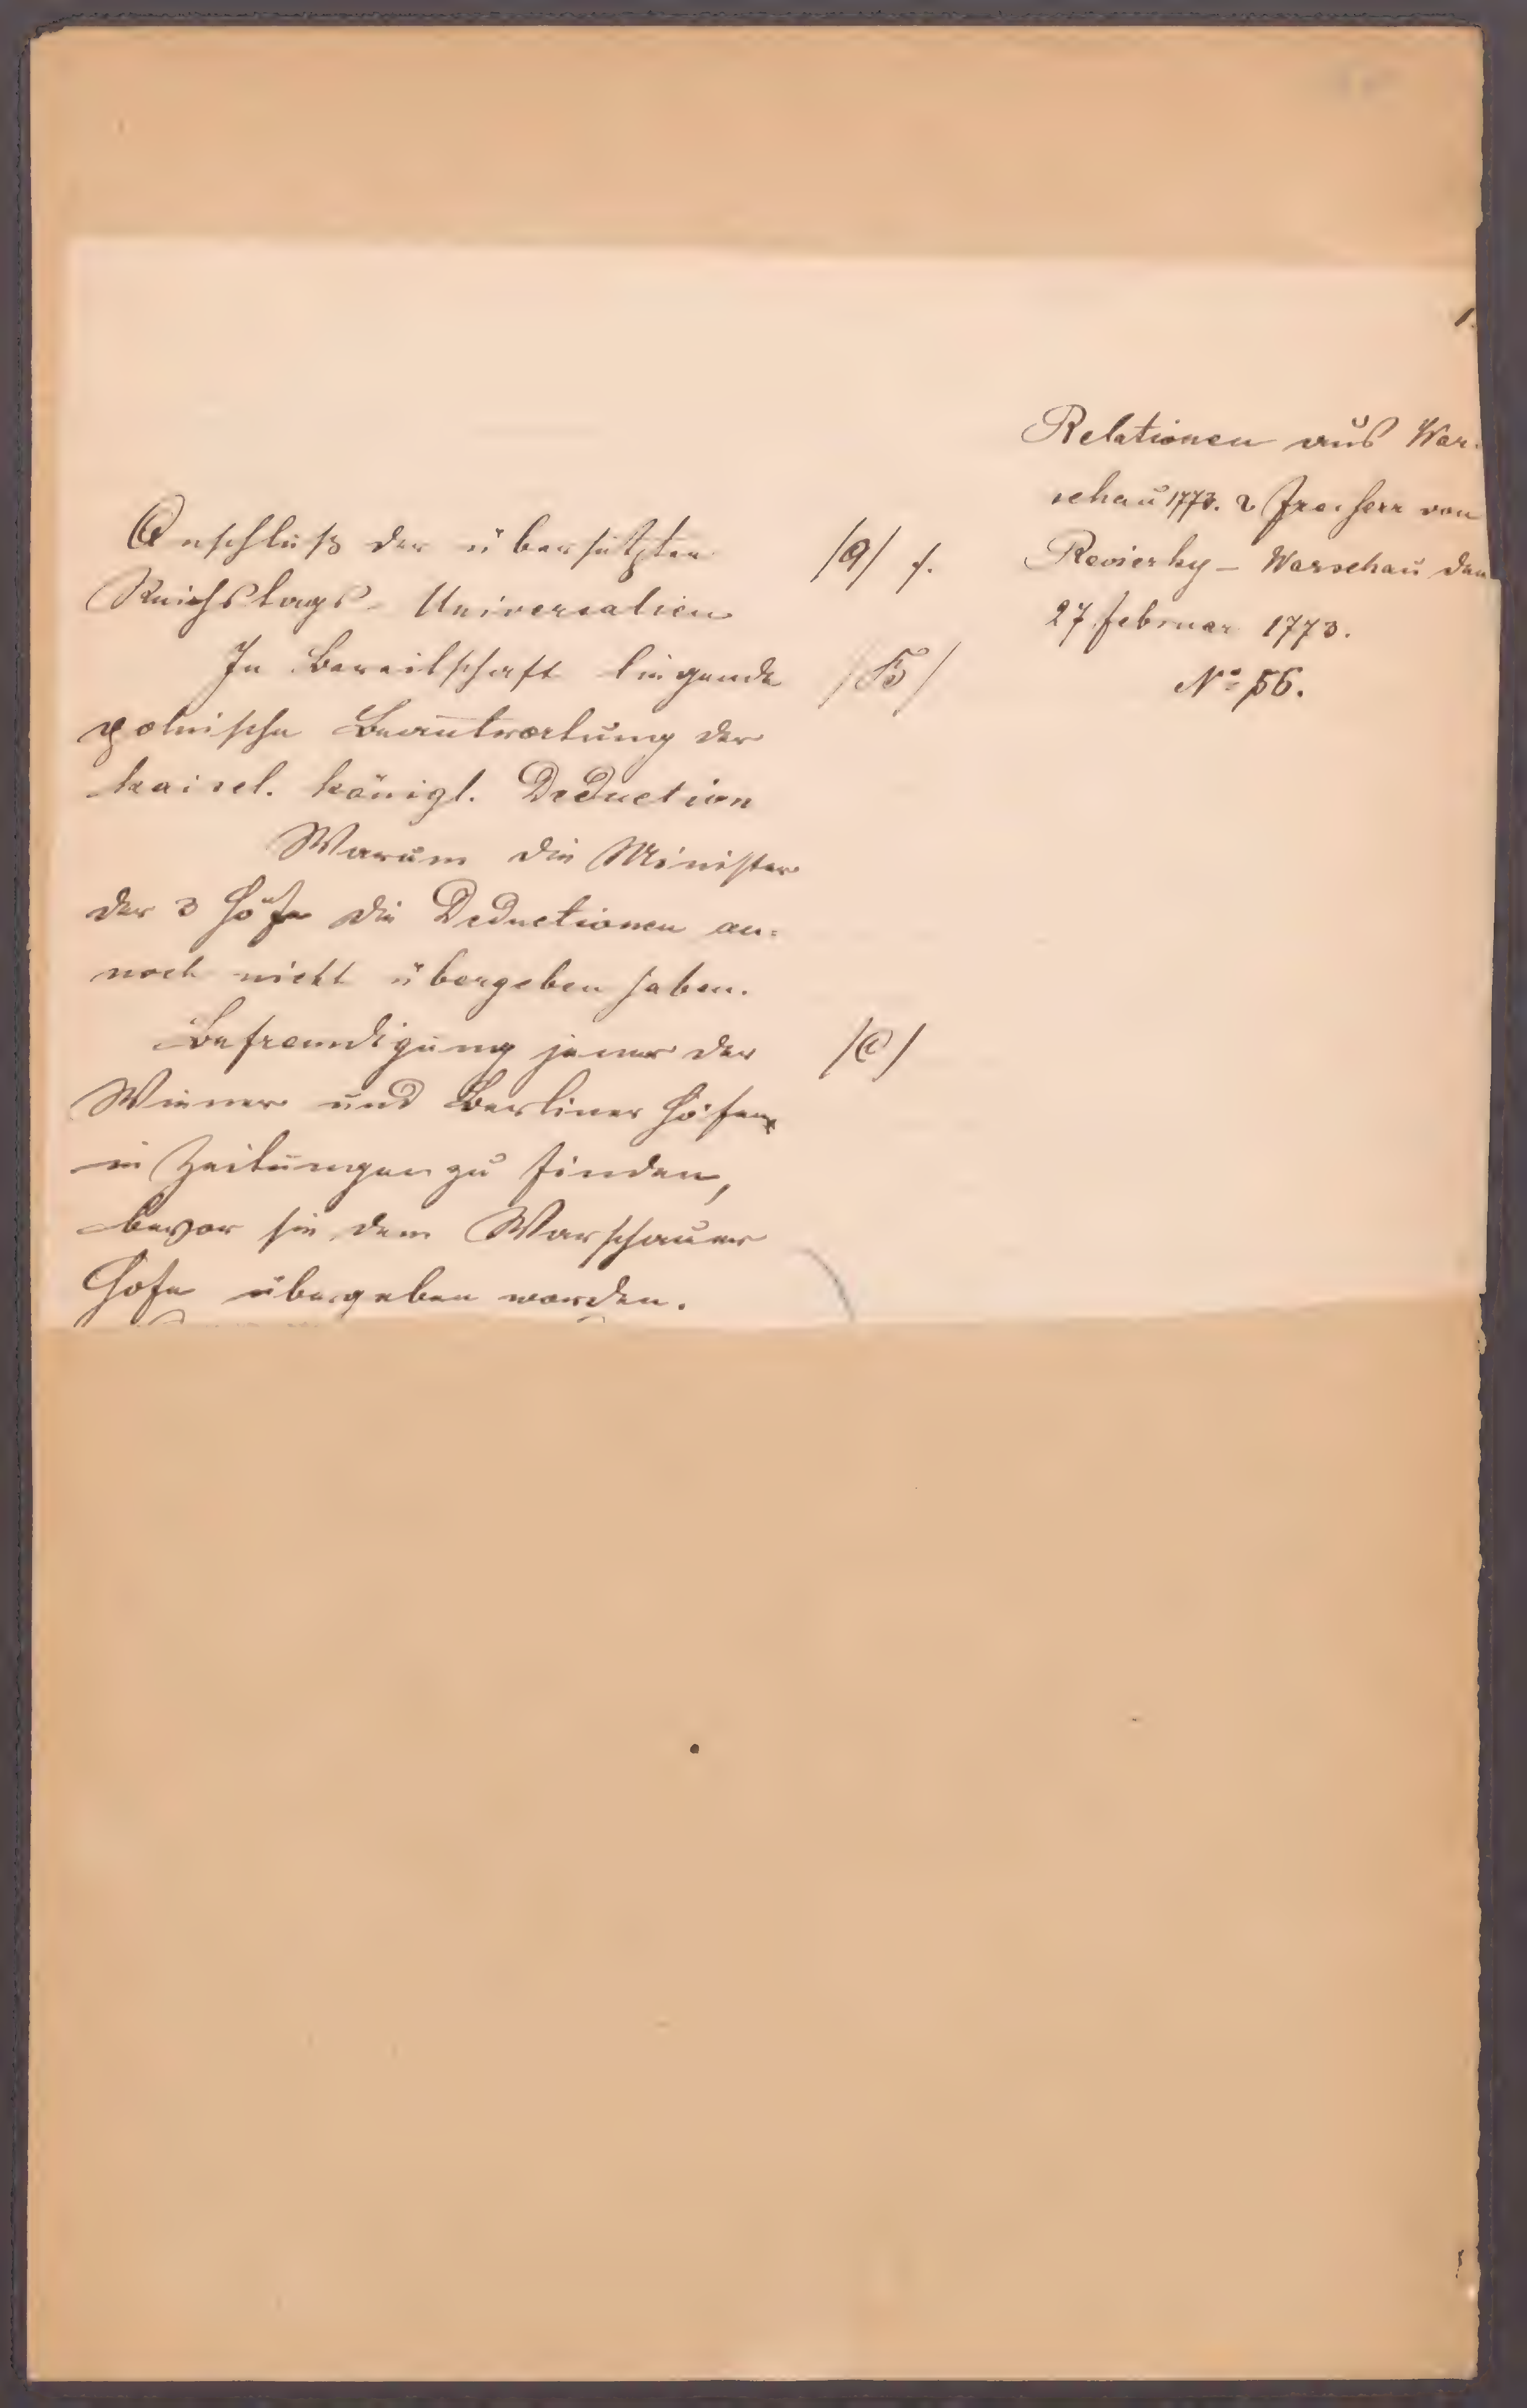 1.
Relationen aus War-
schau 1773. Freiherr von
Reviczky – Warschau den
27 februar 1773.
No 56.
Anschluß der übersetzten
Reichstags-Universalien
/a/ f.
In Bereitschaft liegende
polnische Beantwortung der
kaisel. königl. Deduction
/b/
Warum die Minister
der 3 Höfe die Deductionen an-
noch nicht übergeben haben.
Befremdigung jener der
Wiener und Berliner Höfen
in Zeitungen zu finden,
bevor sie dem Warschauer
Hofe übergeben worden.
/c/